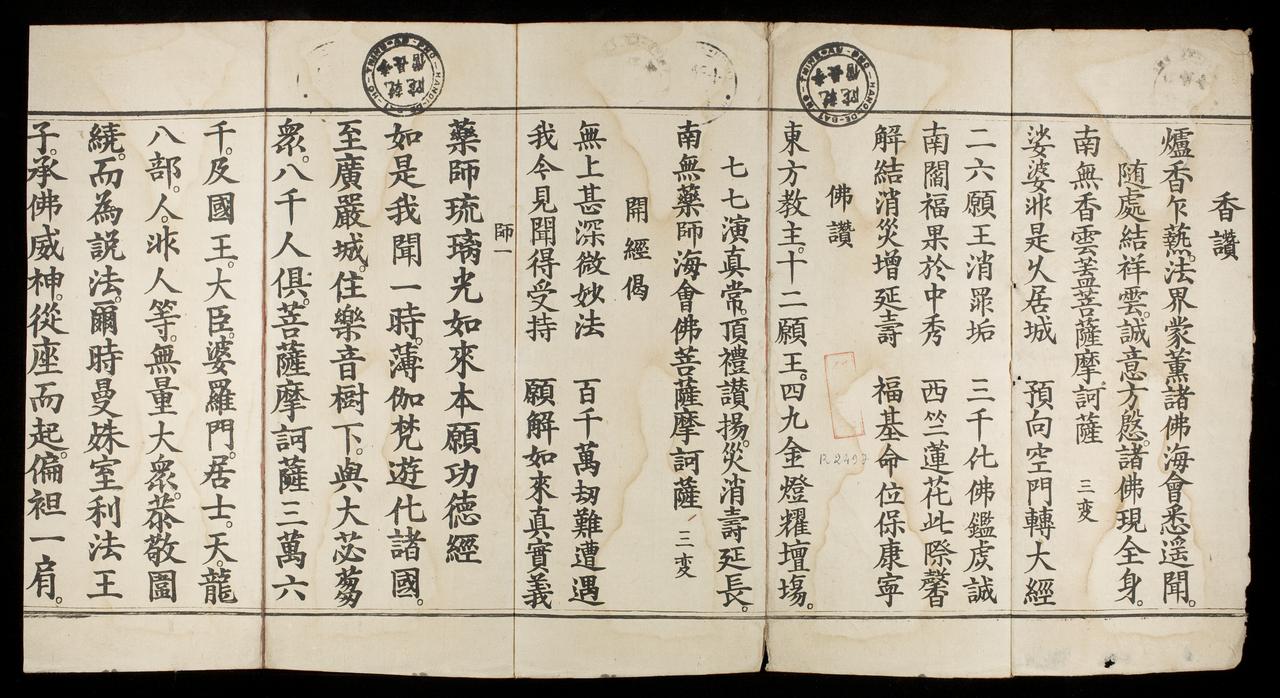 香讚
爐香乍爇。法界蒙薰諸佛海會悉遥聞。
随處結祥雲。誠意方慇。諸佛現全身。
南無香雲盖菩薩摩訶薩 三変
娑婆非是乆居城 預向空門轉大經
二六願王消罪垢 三千化佛鑑虔誠
南閻福果於中秀 西竺蓮花此際馨
解結消災增延壽 福基命位保康寧
佛讚
東方教主。十二願王。四九金燈耀壇塲。
七七演真常。頂禮讃揚。災消壽延長。
南無藥師海會佛菩薩摩訶薩 三変
開經偈
無上甚深微妙法 百千萬劫難遭遇
我今見聞得受持 願解如來真實義
師一
藥師琉璃光如來本願功德經
如是我聞一時。薄伽梵遊化諸國。
至廣嚴城。住樂音樹下。與大苾蒭
衆。八千人俱。菩薩摩訶薩三萬六
千。及國王。大臣。婆羅門。居士。天。龍
八部。人。非人等。無量大衆。恭敬圍
繞。而為説法。爾時曼殊室利法王
子。承佛威神。從座而起。偏袒一肩。
R 2497